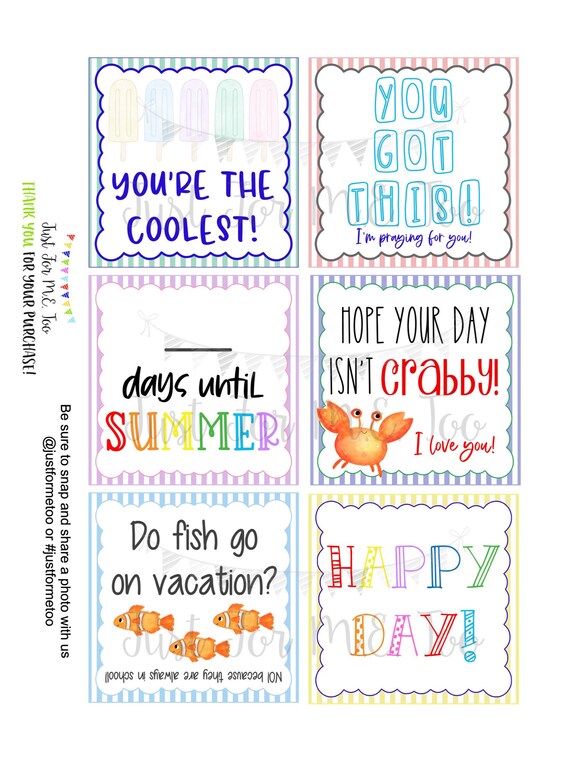 YOU'RE THE
COOLEST!
YOU
GOT
THIS!
I'm praying for you!
days until
SUMMER
HOPE YOUR DAY
ISN'T crabby!
I love you!
Do fish go
on vacation?
NO! because they are always in school!
HAPPY
DAY!
Just For M.E. Too
THANK YOU FOR YOUR PURCHASE!
Be sure to snap and share a photo with us
@justformetoo or #justformetoo
Just For M.E. Too
Just For M.E. Too
Just For M.E. Too